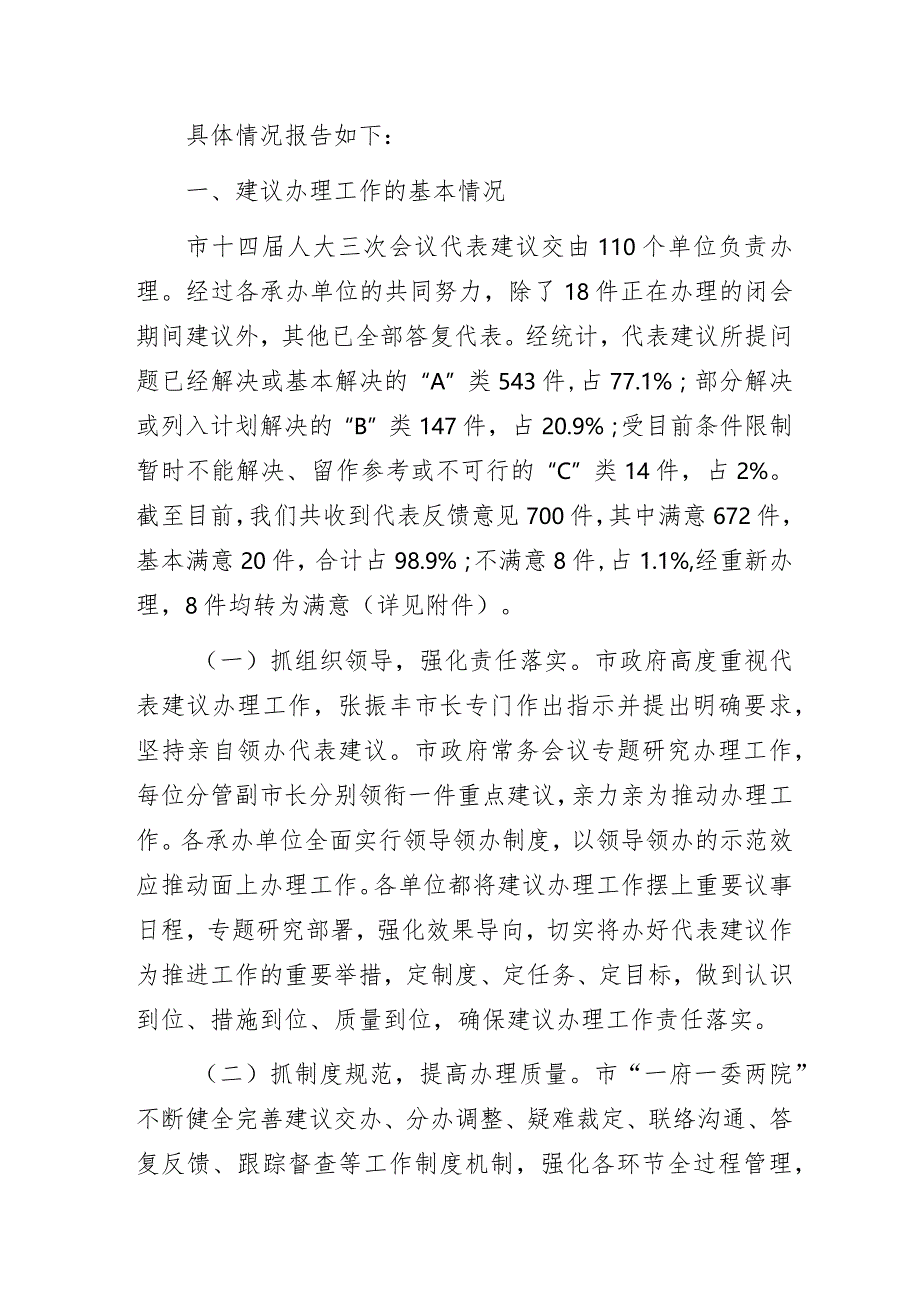 具体情况报告如下：
一、建议办理工作的基本情况
市十四届人大三次会议代表建议交由 110 个单位负责办
理。经过各承办单位的共同努力，除了 18 件正在办理的闭会
期间建议外，其他已全部答复代表。经统计，代表建议所提问
题已经解决或基本解决的“A”类 543 件,占 77.1%；部分解决
或列入计划解决的“B”类 147 件，占 20.9%；受目前条件限制
暂时不能解决、留作参考或不可行的“C”类 14 件，占 2%。
截至目前,我们共收到代表反馈意见 700 件,其中满意 672 件，
基本满意 20 件，合计占 98.9%；不满意 8 件,占 1.1%,经重新办
理，8 件均转为满意（详见附件）。
（一）抓组织领导，强化责任落实。市政府高度重视代
表建议办理工作，张振丰市长专门作出指示并提出明确要求，
坚持亲自领办代表建议。市政府常务会议专题研究办理工作，
每位分管副市长分别领衔一件重点建议，亲力亲为推动办理工
作。各承办单位全面实行领导领办制度，以领导领办的示范效
应推动面上办理工作。各单位都将建议办理工作摆上重要议事
日程，专题研究部署，强化效果导向，切实将办好代表建议作
为推进工作的重要举措，定制度、定任务、定目标，做到认识
到位、措施到位、质量到位，确保建议办理工作责任落实。
（二）抓制度规范，提高办理质量。市“一府一委两院”
不断健全完善建议交办、分办调整、疑难裁定、联络沟通、答
复反馈、跟踪督查等工作制度机制，强化各环节全过程管理，